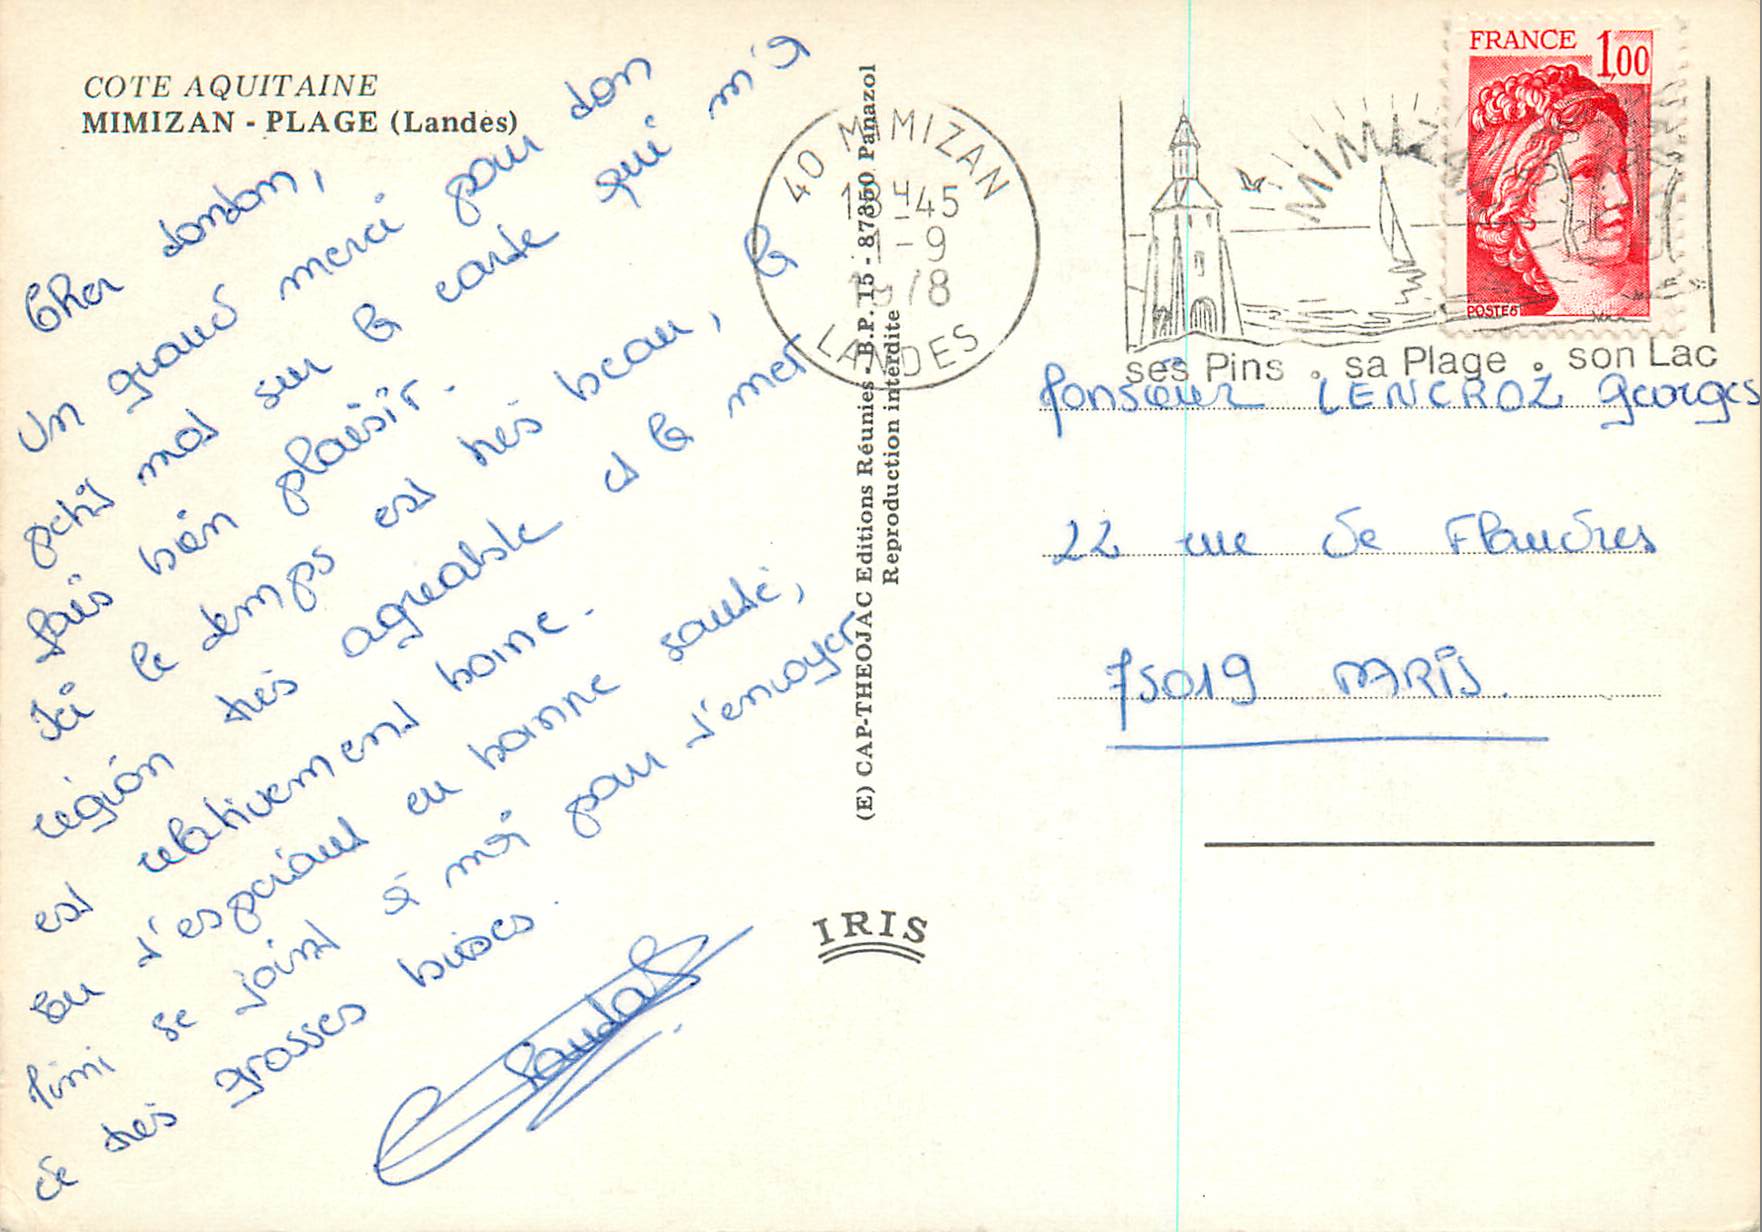 COTE AQUITAINE
MIMIZAN - PLAGE (Landes)
Cher tonton,
Un grand merci pour ton
petit mot sur la carte qui m'a
fais bien plaisir.
Ici le temps est très beau, la
région très agreable et la mer
est relativement bonne.
En t'espérant en bonne santé,
Mimi se joint à moi pour t'envoyer
de très grosses bises.
(E) CAP-THEOJAC Editions Réunies - B.P. 15 - 87350 Panazol
Reproduction interdite
IRIS
40 MIMIZAN
18 H 45
-9
1978
LANDES
MIMIZAN
ses Pins . sa Plage . son Lac
FRANCE 1,00
POSTES
Monsieur LENCROZ Georges
22 rue de Flandres
75019 PARIS.